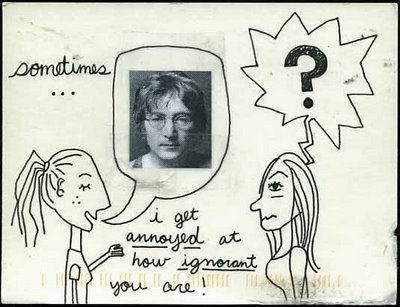 sometimes
...
?
i get
annoyed at
how ignorant
you are!